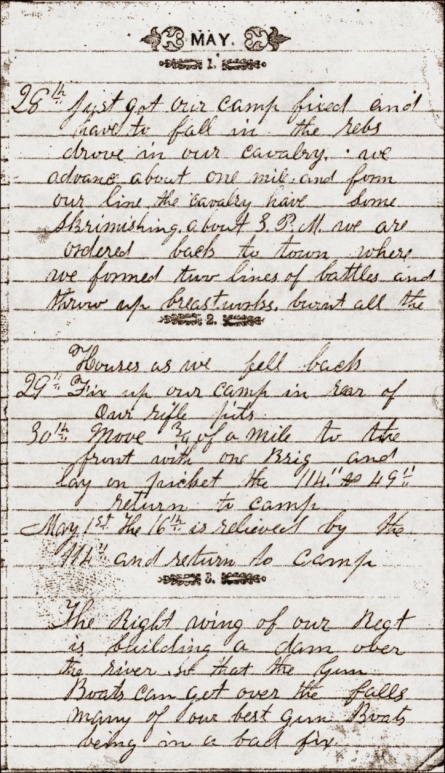 MAY.
1.
28th Just got our camp fixed and
have to fall in the rebs
drove in our cavalry. we
advance about one mile and form
our line the cavalry have some
Skrimishing, about 3. P.M. we are
ordered back to town where
we formed two lines of battles and
throw up breastworks. burnt all the
2.
Houses as we fell back
29th Fix up our camp in rear of
Our rifle pits
30th Move 3/4 of a mile to the
front with our Brig and
lay on picket the 114" 49"
return to camp
May 1st the 16th is relieved by the
114" and return to camp
3.
The Right wing of our Regt
is building a dam over
the river so that the Gun
Boats can get over the falls
many of our best Gun Boats
being in a bad fix